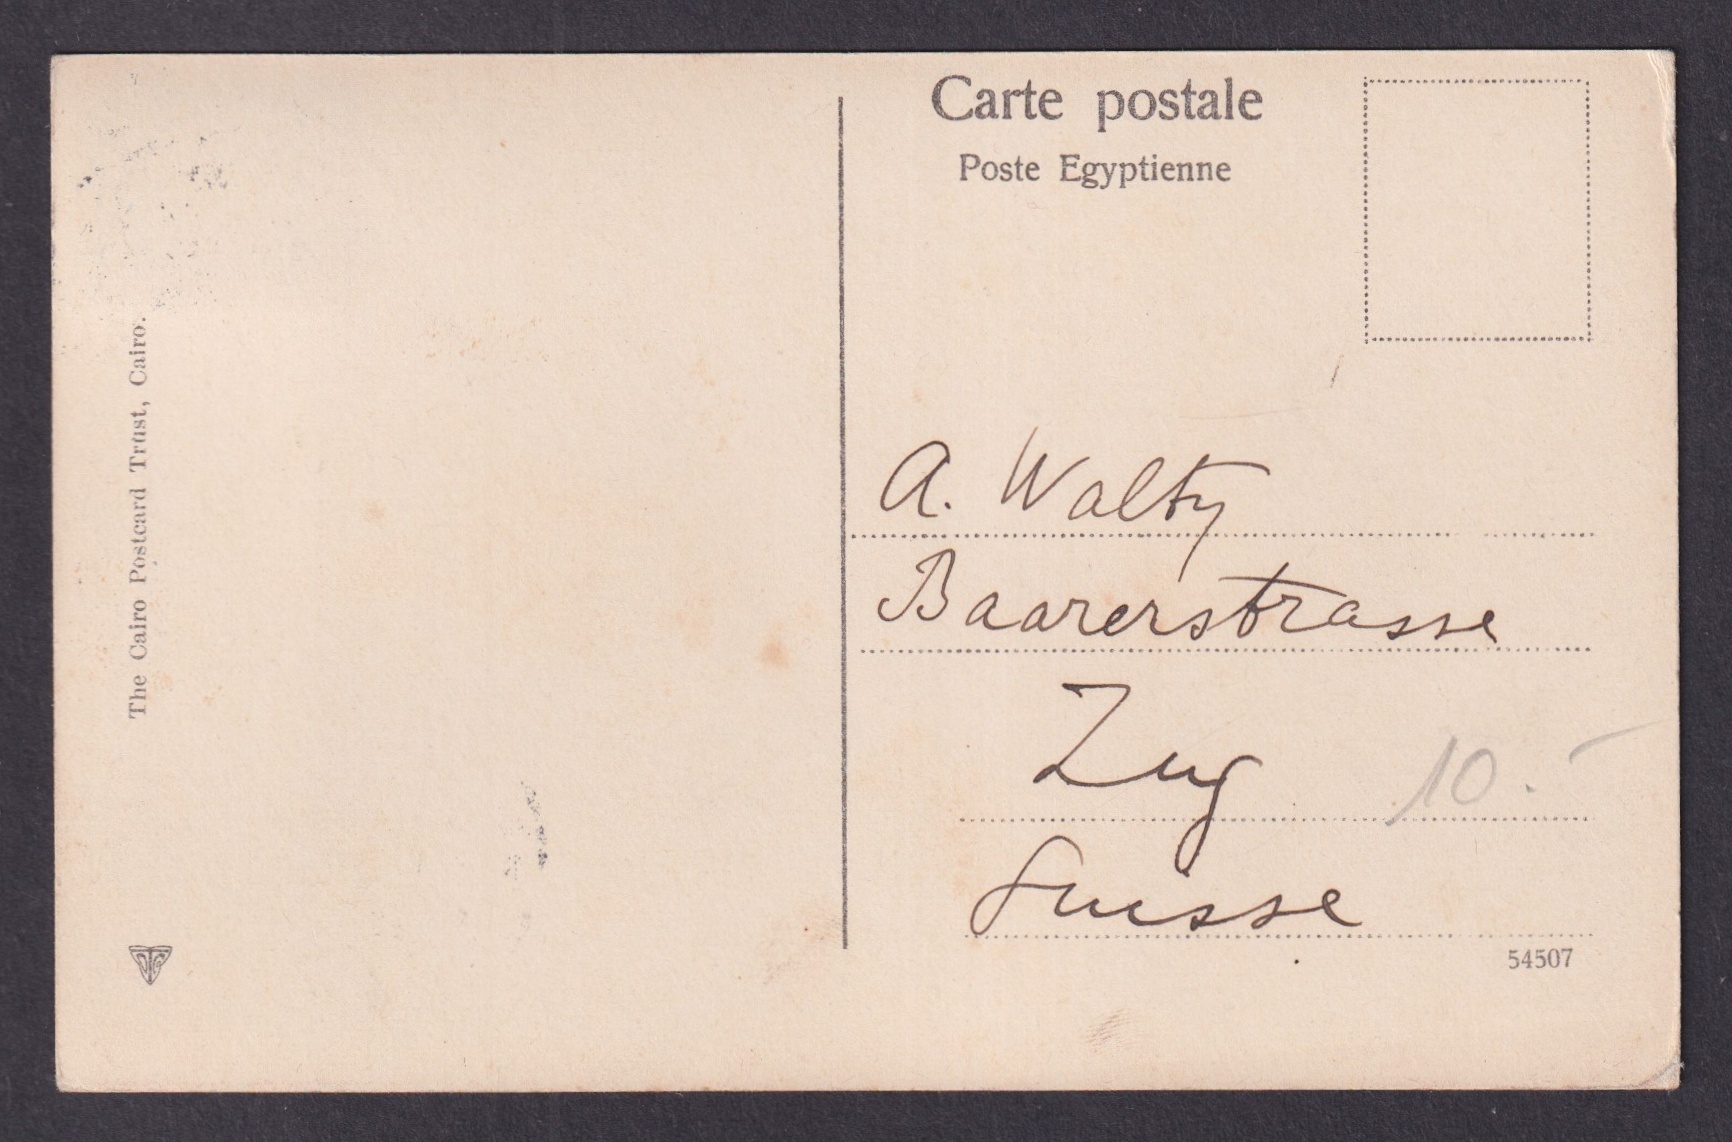 Carte postale
Poste Egyptienne
The Cairo Postcard Trust, Cairo.
A. Walty
Baarerstrasse
Zug
10.-
Suisse
54507